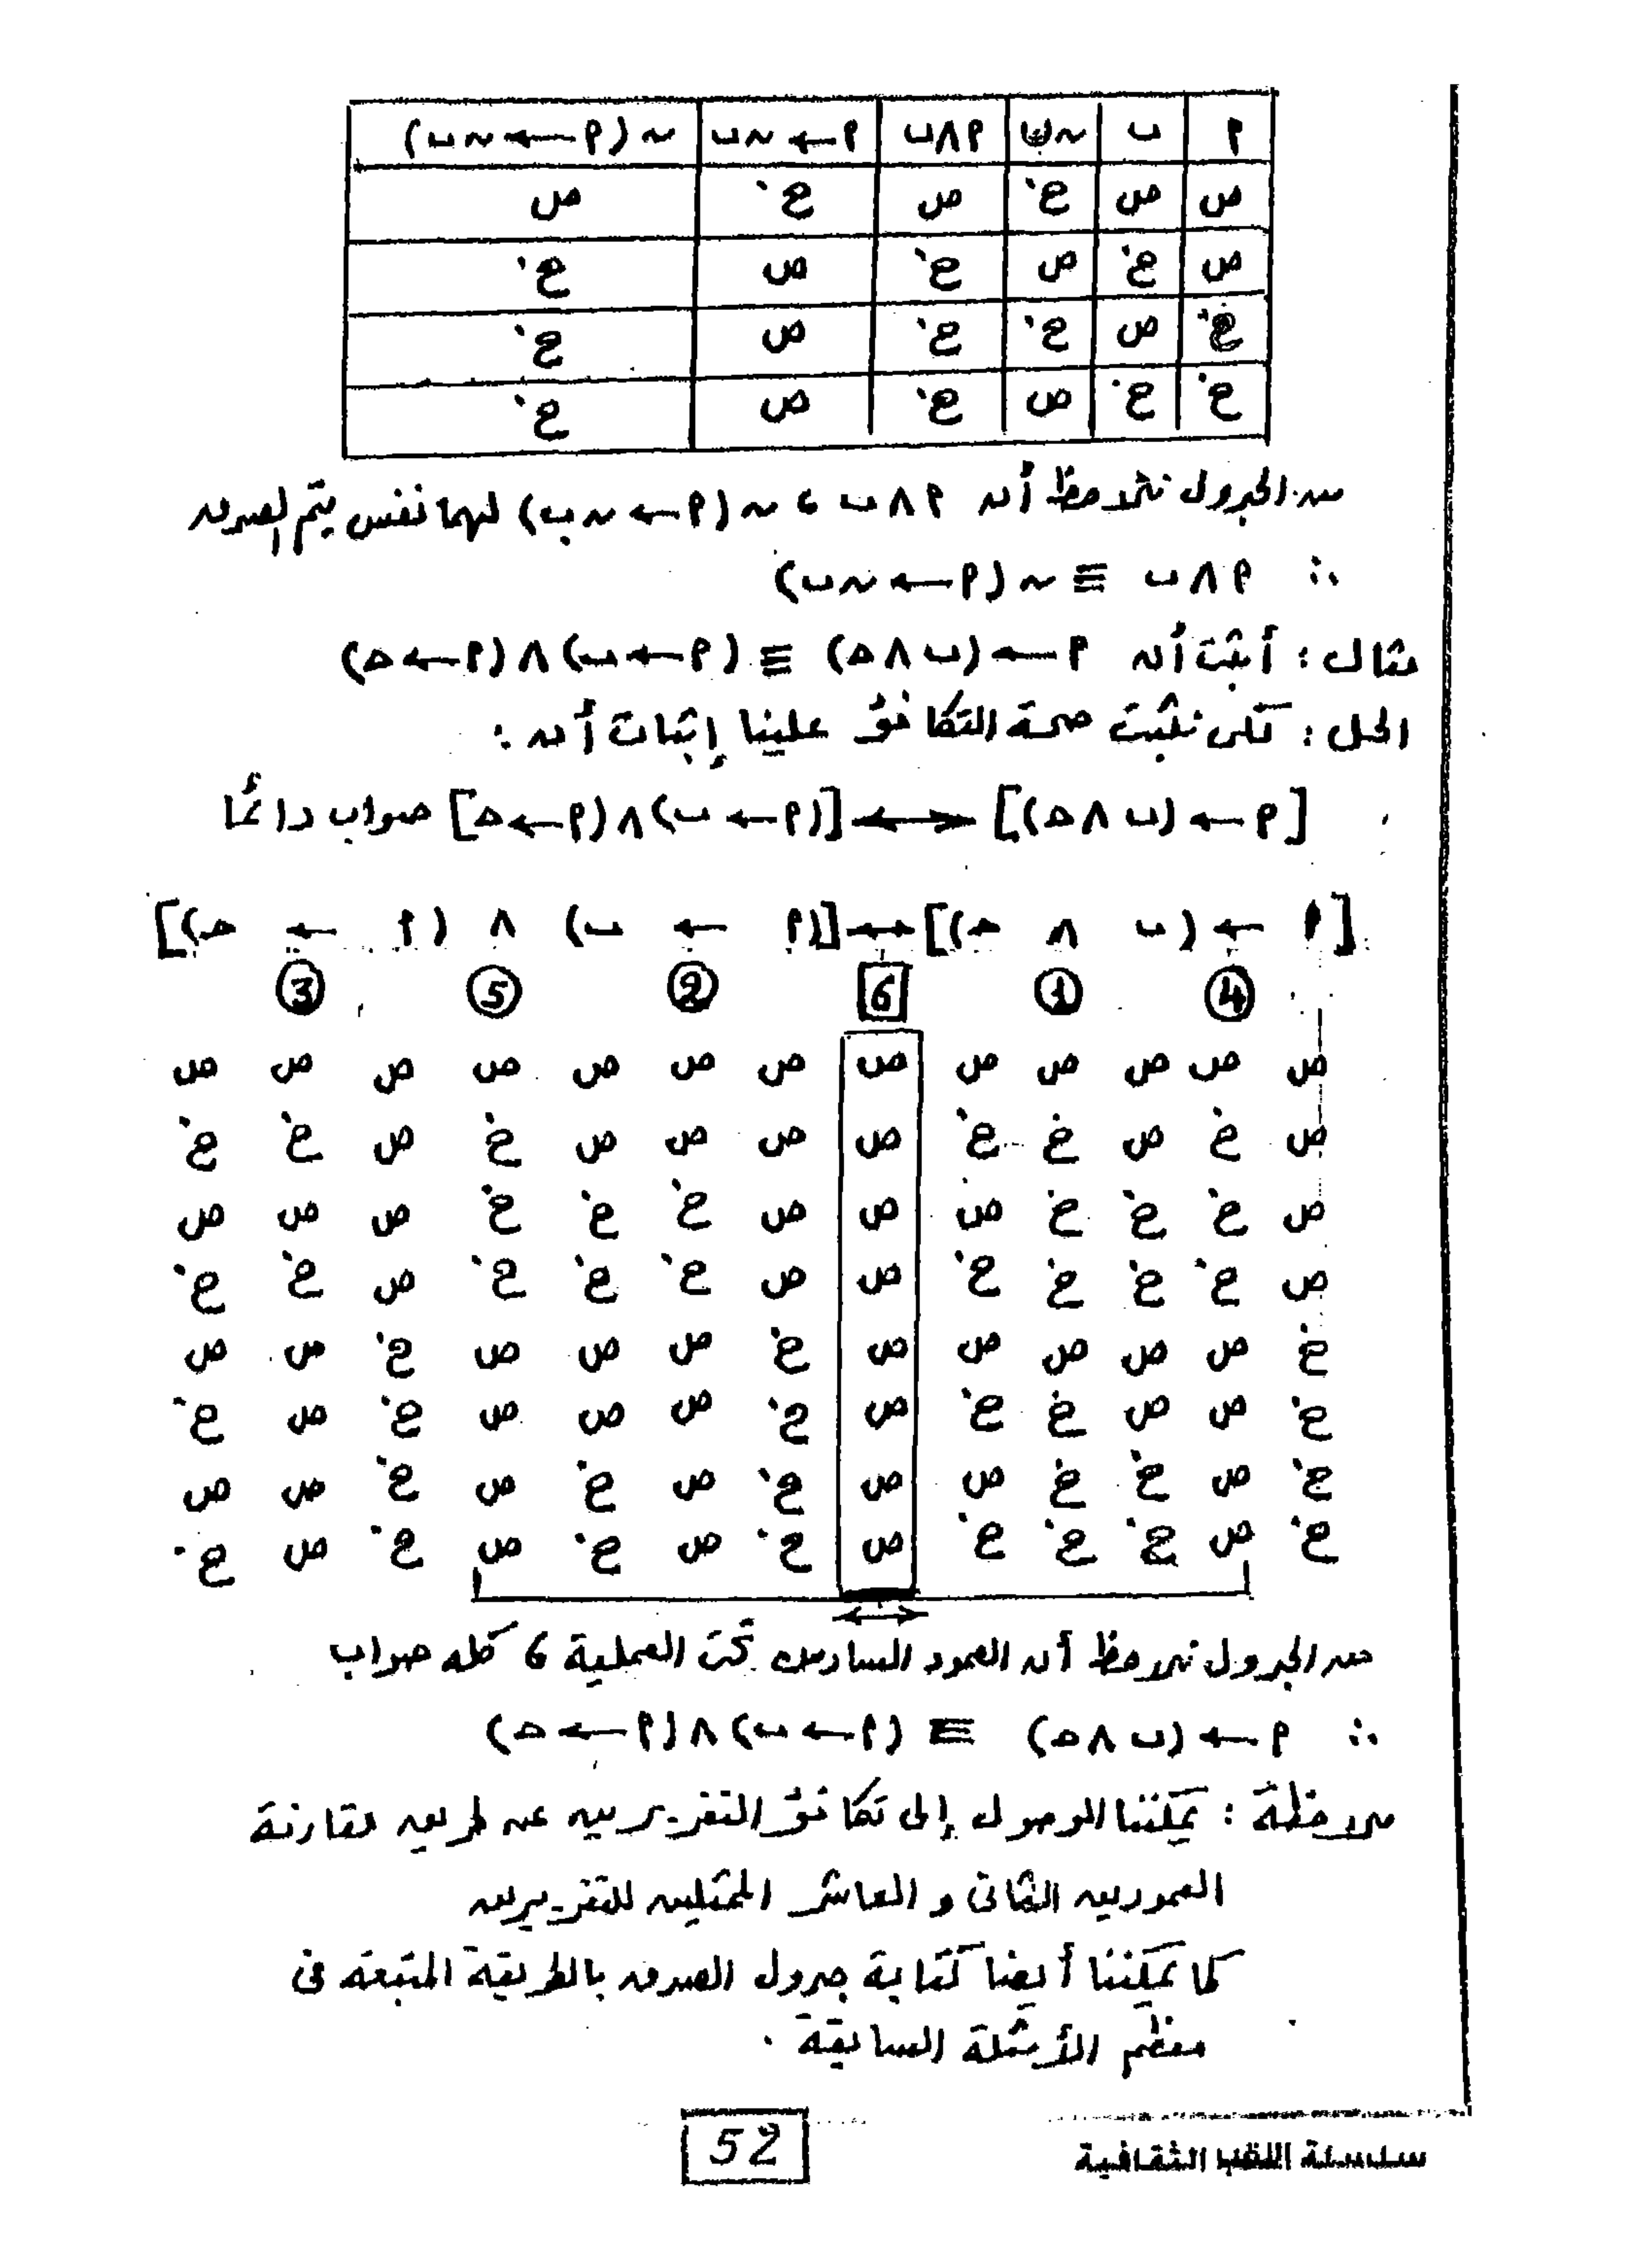 م | ب | ~ب | م ∧ ب | م ← ~ب | ~ (م ← ~ب)
ص | ص | خ | ص | خ | ص
ص | خ | ص | خ | ص | خ
خ | ص | خ | خ | ص | خ
خ | خ | ص | خ | ص | خ
من الجدول نلاحظ أن م ∧ ب ، ~ (م ← ~ب) لهما نفس قيم الصدق
∴ م ∧ ب ≡ ~ (م ← ~ب)
مثال : أثبت أن م ← (ب ∧ ح) ≡ (م ← ب) ∧ (م ← ح)
الحل : لكى نثبت صحة التكافؤ علينا إثبات أن :
[م ← (ب ∧ ح)] ↔ [(م ← ب) ∧ (م ← ح)] صواب دائمًا
[م ← (ب ∧ ح)] ↔ [(م ← ب) ∧ (م ← ح)]
4 1 6 2 5 3
ص ص ص ص ص ص ص ص ص ص ص ص ص
ص خ ص خ خ ص ص ص ص خ ص خ خ
ص خ خ خ ص ص ص خ خ خ ص ص ص
ص خ خ خ خ ص ص خ خ خ ص خ خ
خ ص ص ص ص ص خ ص ص ص خ ص ص
خ ص ص خ خ ص خ ص ص ص خ ص خ
خ ص خ خ ص ص خ ص خ ص خ ص ص
خ ص خ خ خ ص خ ص خ ص خ ص خ
↔
من الجدول نلاحظ أن العمود السادس تحت العملية 6 كله صواب
∴ م ← (ب ∧ ح) ≡ (م ← ب) ∧ (م ← ح)
ملاحظة : يمكننا الوصول إلى تكافؤ التقريرين عن طريق مقارنة
العمودين الثانى و العاشر الممثلين للتقريرين
كما يمكننا أيضا كتابة جدول الصدق بالطريقة المتبعة فى
معظم الأمثلة السابقة .
52
سلسلة الثقافية